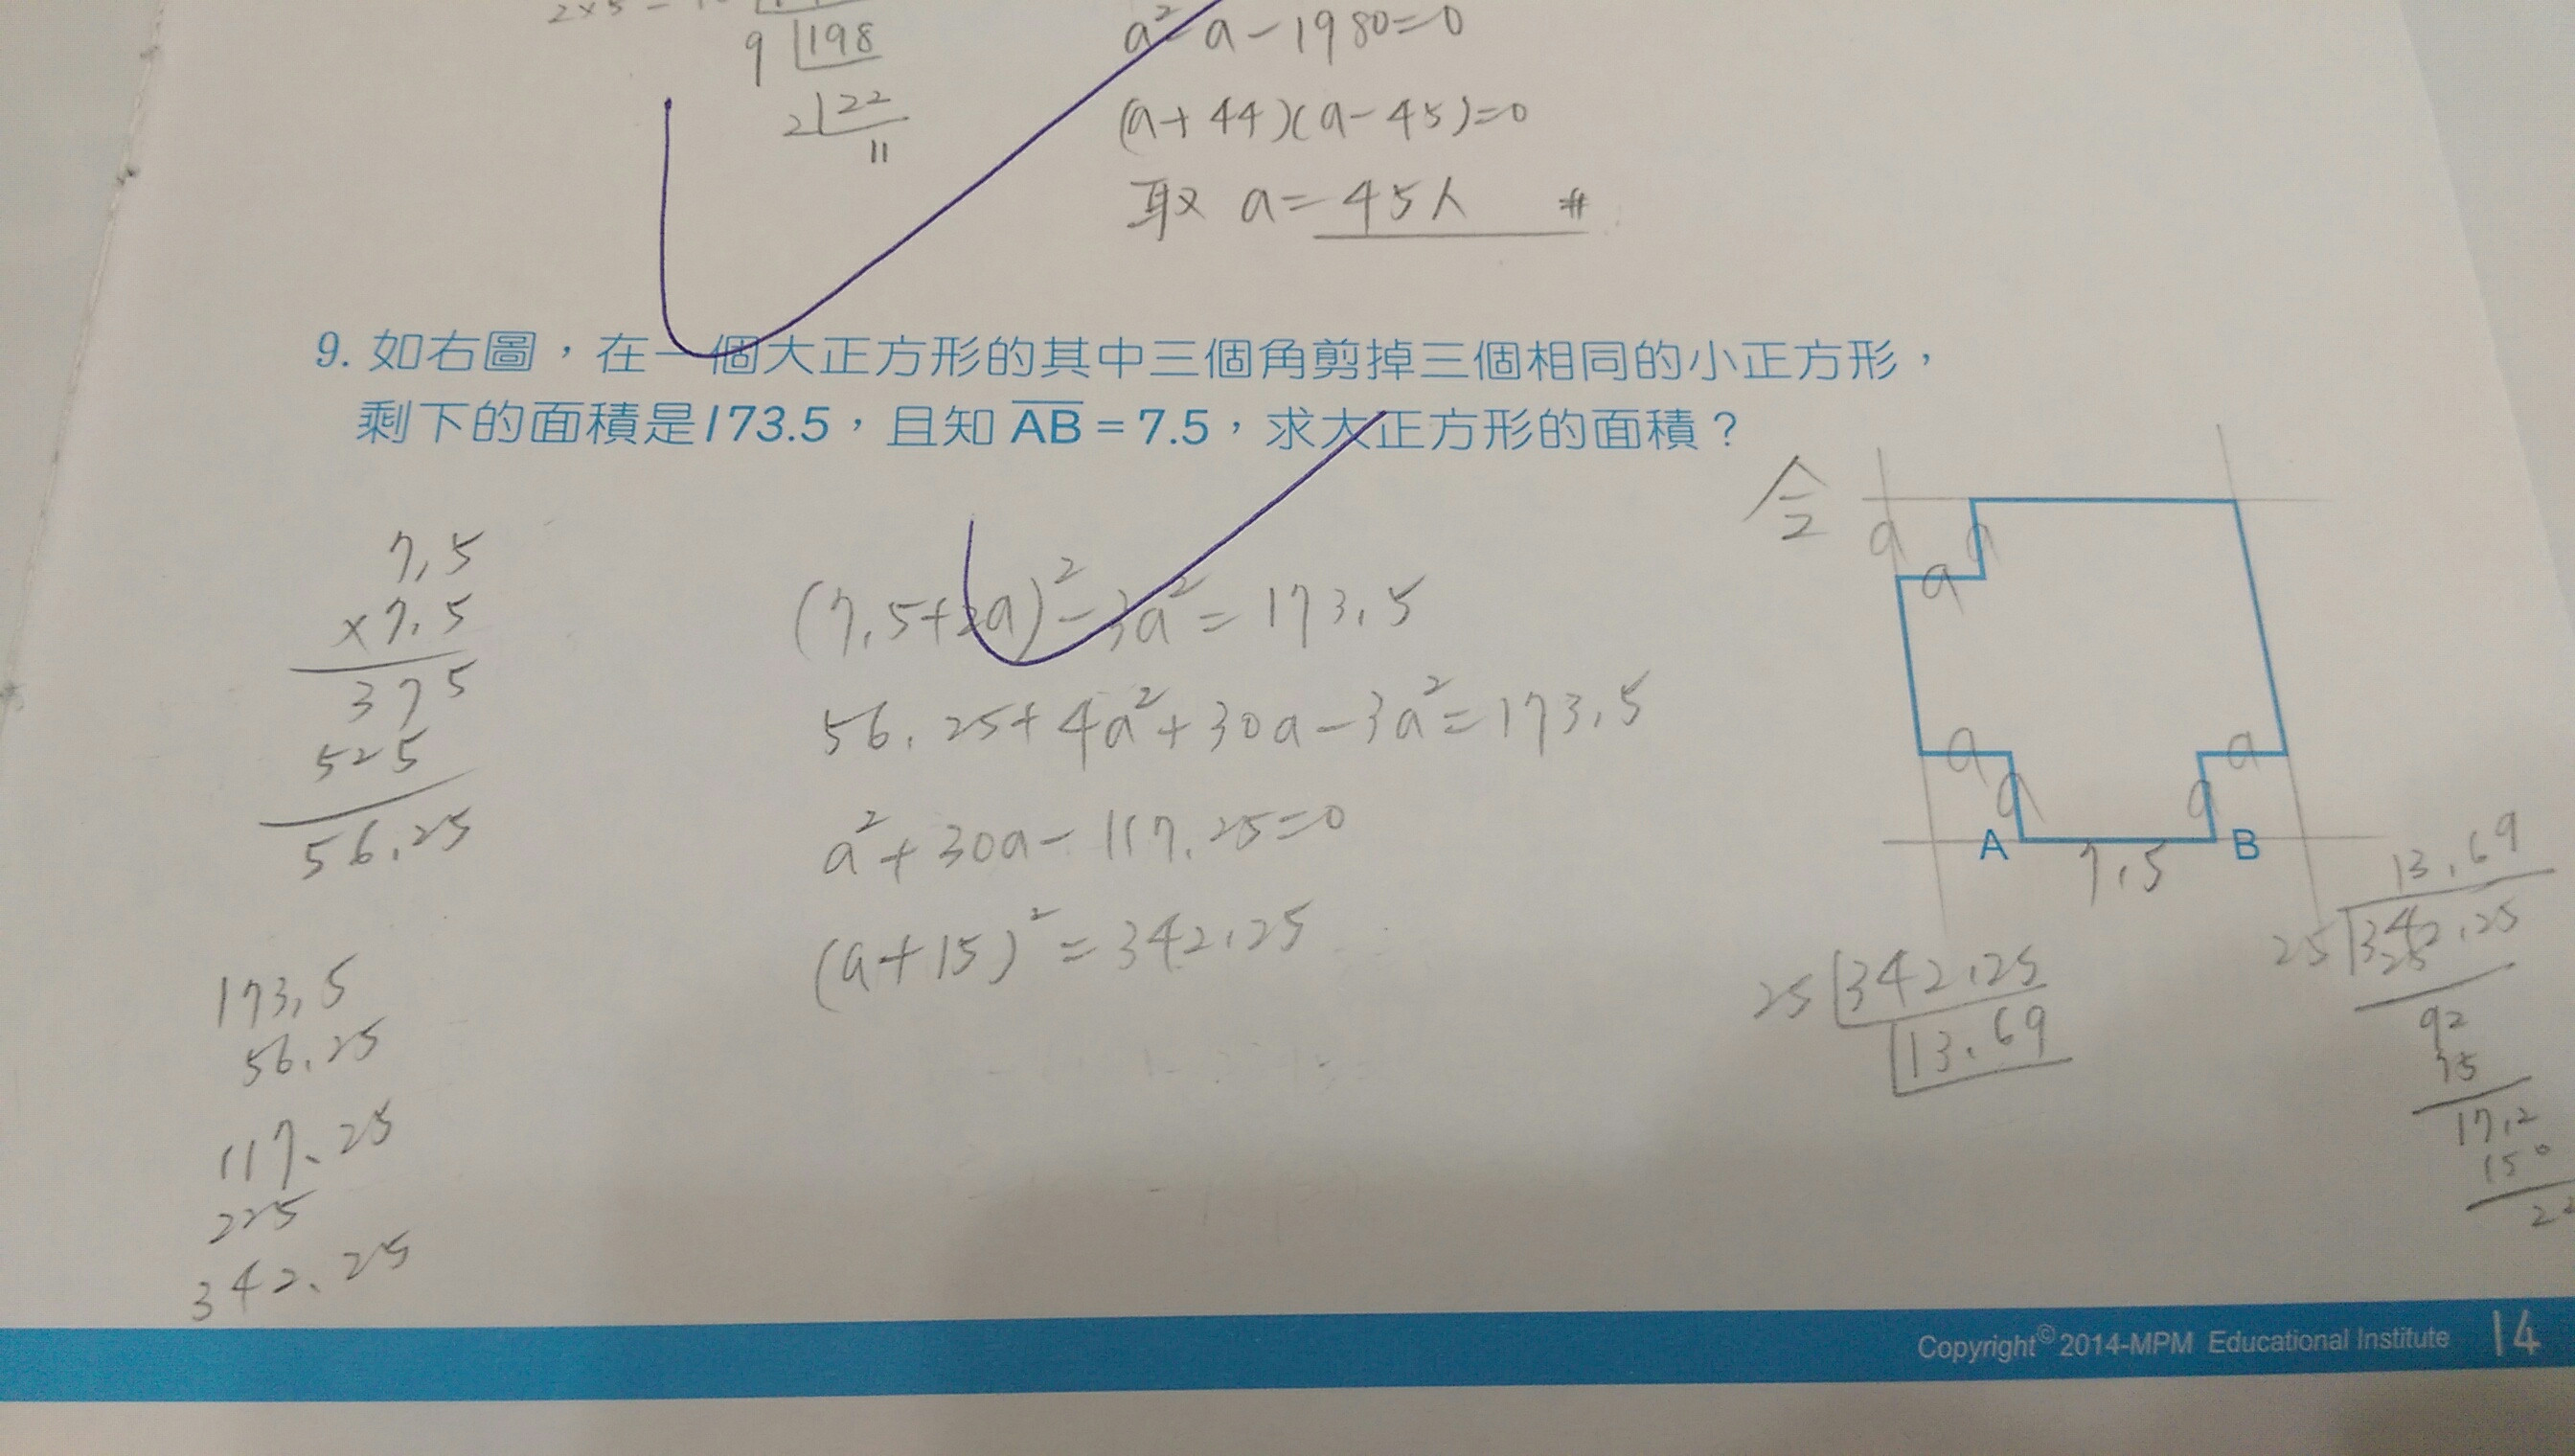 9 198
2 22
11
a²-a-1980=0
(a+44)(a-45)=0
取 a=45人 #
9. 如右圖，在一個大正方形的其中三個角剪掉三個相同的小正方形，
剩下的面積是173.5，且知 AB = 7.5，求大正方形的面積？
令
a
a
a
a
a
a
a
A
B
7.5
7.5
×7.5
375
525
56.25
(7.5+2a)²-3a²=173.5
56.25+4a²+30a-3a²=173.5
a²+30a-117.25=0
(a+15)²=342.25
173.5
56.25
117.25
225
342.25
25 342.25
13.69
13.69
25 342.25
25
92
75
17.2
150
Copyright© 2014-MPM Educational Institute 14